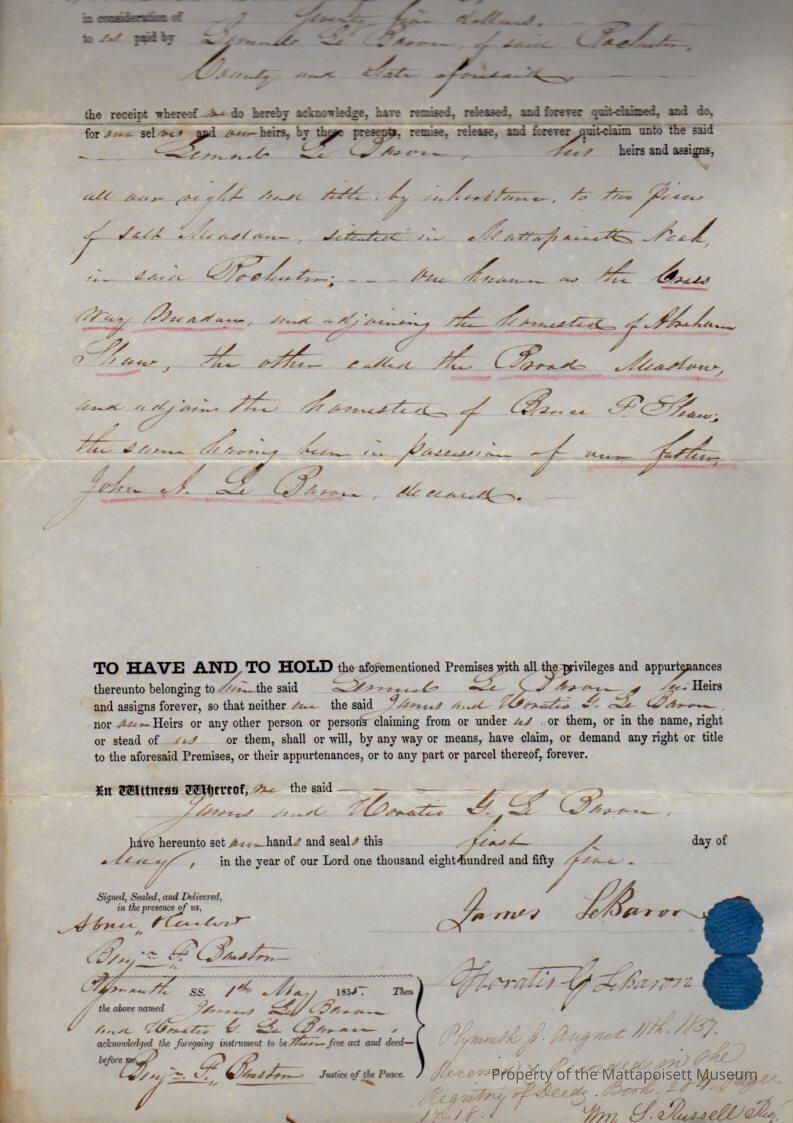 in consideration of Seventy five dollars.
to us paid by Lemuel Le Baron, of said Rochester,
County and State aforesaid,
the receipt whereof we do hereby acknowledge, have remised, released, and forever quit-claimed, and do,
for our selves and our heirs, by these presents, remise, release, and forever quit-claim unto the said
Lemuel Le Baron, his heirs and assigns,
all our right and title, by inheritance, to two pieces
of salt Meadow, situated in Mattapoisett Neck,
in said Rochester; one known as the Cross
Way Meadow, and adjoining the homested of Abraham
Shaw, the other called the Broad Meadow,
and adjoins the homested of Bruce F. Shaw;
the same having been in possession of our father,
John A. Le Baron, deceased.
TO HAVE AND TO HOLD the aforementioned Premises with all the privileges and appurtenances
thereunto belonging to him the said Lemuel Le Baron, his Heirs
and assigns forever, so that neither we the said James and Horatio G. Le Baron,
nor our Heirs or any other person or persons claiming from or under us or them, or in the name, right
or stead of us or them, shall or will, by any way or means, have claim, or demand any right or title
to the aforesaid Premises, or their appurtenances, or to any part or parcel thereof, forever.
In Witness Whereof, we the said
James and Horatio G. Le Baron,
have hereunto set our hands and seals this first day of
May, in the year of our Lord one thousand eight hundred and fifty five.
Signed, Sealed, and Delivered,
in the presence of us,
Abner
Benj. F. Barstow
James LeBaron
Horatio G LeBaron
Plymouth SS. 1st May 1855. Then
the above named James Le Baron
and Horatio G. Le Baron,
acknowledged the foregoing instrument to be their free act and deed—
before me,
Benj. F. Barstow Justice of the Peace.
Plymouth ss. August 11th. 1857.
Received & Recorded in the
Registry of Deeds Book
17-18.
Wm. S. Russell Reg.
Property of the Mattapoisett Museum